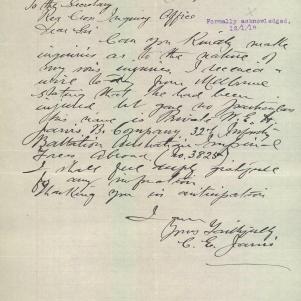 To the Secretary
Red Cross Inquiry Office
Formally acknowledged,
12/1/18
Dear Sir
Can you Kindly make
inquiries as to the nature of
my sons injuries I received a
wire from Melbourne
stating that he had been
injured but gave no particulars
His name is Private W. E.
Jarvis B. Company 32nd Infantry
Battalion Australian Imperial
Force Abroad (No. 3825
I shall feel deeply grateful
for any information
Thanking you in anticipation
I am
Yours Faithfully
C. E. Jarvis